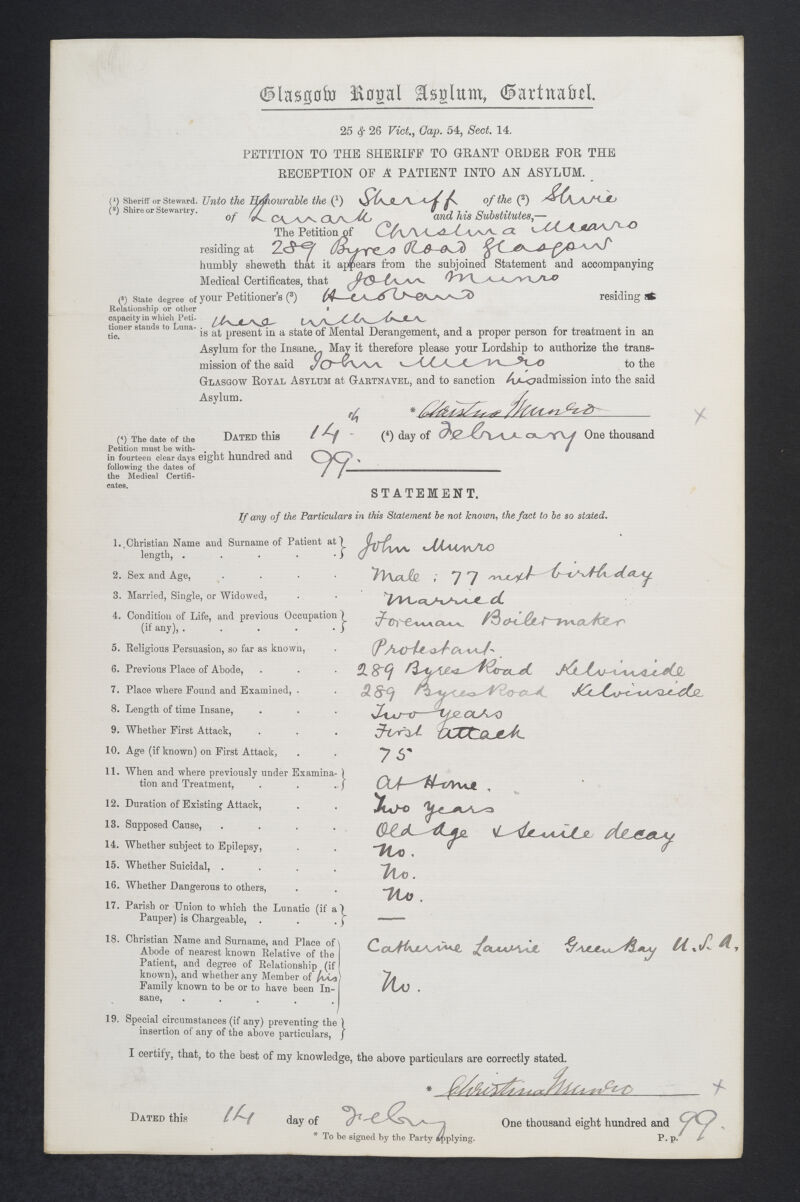 Glasgow Royal Asylum, Gartnavel.
25 & 26 Vict., Cap. 54, Sect. 14.
PETITION TO THE SHERIFF TO GRANT ORDER FOR THE
RECEPTION OF A PATIENT INTO AN ASYLUM.
(¹) Sheriff or Steward.
(²) Shire or Stewartry.
Unto the Honourable the (¹) Sheriff of the (²) Shire
of Lanark and his Substitutes,—
The Petition of Christina Munro
residing at 289 Byres Road Glasgow
humbly sheweth that it appears from the subjoined Statement and accompanying
Medical Certificates, that John Munro
(³) State degree of
Relationship or other
capacity in which Peti-
tioner stands to Luna-
tic.
your Petitioner's (³) Husband residing at
there with her
is at present in a state of Mental Derangement, and a proper person for treatment in an
Asylum for the Insane. May it therefore please your Lordship to authorize the trans-
mission of the said John Munro to the
GLASGOW ROYAL ASYLUM AT GARTNAVEL, and to sanction his admission into the said
Asylum.
* Christina Munro x
(⁴) The date of the
Petition must be with-
in fourteen clear days
following the dates of
the Medical Certifi-
cates.
DATED this 14th (⁴) day of February One thousand
eight hundred and 99.
STATEMENT.
If any of the Particulars in this Statement be not known, the fact to be so stated.
1. Christian Name and Surname of Patient at
length, . . . . . John Munro
2. Sex and Age, . . . . Male : 77 next birthday
3. Married, Single, or Widowed, . . Married
4. Condition of Life, and previous Occupation
(if any), . . . . . Foreman Boilermaker
5. Religious Persuasion, so far as known, . Protestant.
6. Previous Place of Abode, . . . 289 Byres Road Kelvinside
7. Place where Found and Examined, . . 289 Byres Road Kelvinside
8. Length of time Insane, . . . Two years
9. Whether First Attack, . . . First attack
10. Age (if known) on First Attack, . . 75
11. When and where previously under Examina-
tion and Treatment, . . . At Home.
12. Duration of Existing Attack, . . Two years
13. Supposed Cause, . . . . Old Age & Senile decay
14. Whether subject to Epilepsy, . . No.
15. Whether Suicidal, . . . . No.
16. Whether Dangerous to others, . . No.
17. Parish or Union to which the Lunatic (if a
Pauper) is Chargeable, . . . —
18. Christian Name and Surname, and Place of
Abode of nearest known Relative of the
Patient, and degree of Relationship (if
known), and whether any Member of his
Family known to be or to have been In-
sane, . . . . .
Catherine Lawrie Green Bay U.S.A.
No.
19. Special circumstances (if any) preventing the
insertion of any of the above particulars,
I certify, that, to the best of my knowledge, the above particulars are correctly stated.
* Christina Munro x
DATED this 14 day of Febry One thousand eight hundred and 99.
* To be signed by the Party applying. P. p.